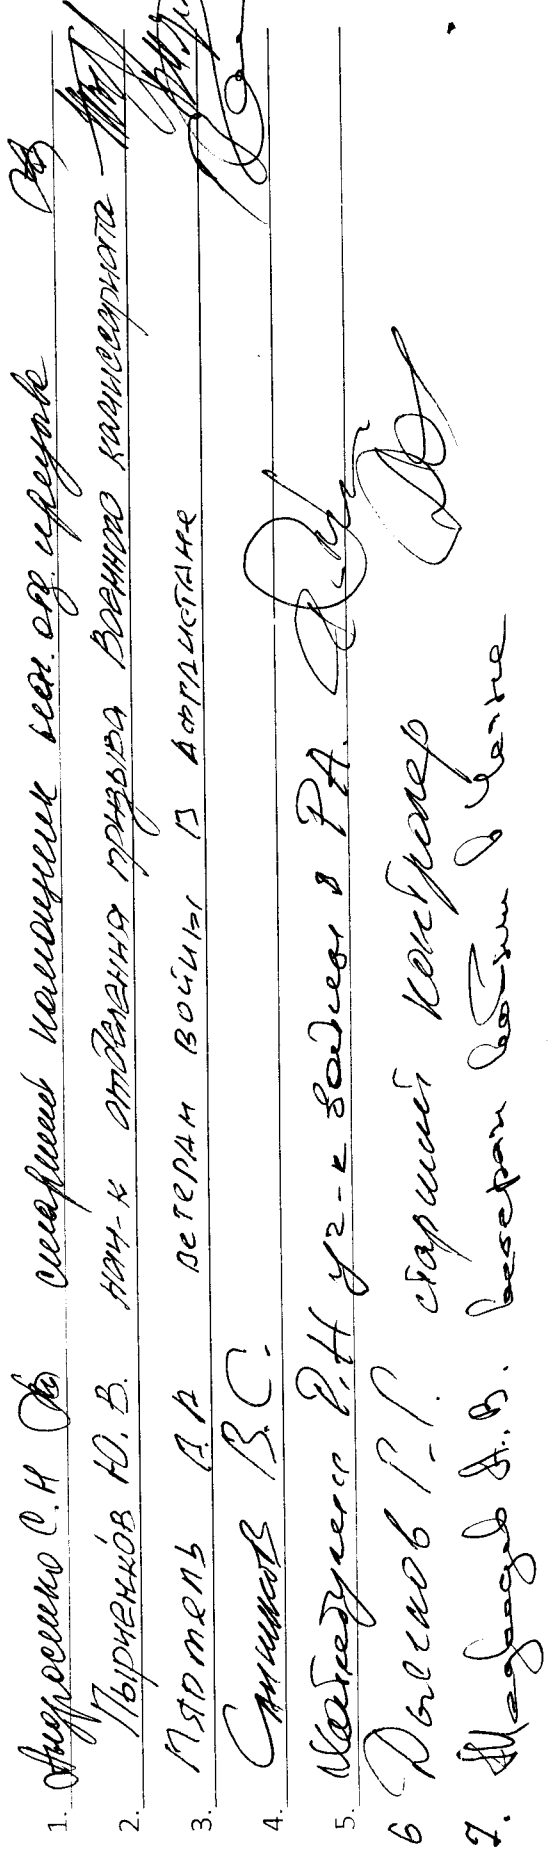 1. Андросенко С.Н старший помощник нач. отд.
2. Пырченков Ю.В. нач-к отделения призыва Военного комиссариата
3. Пяртель В.А ветеран войны в Афганистане
4. В.С.
5. Р.Н уч-к войны в РА.
6 Дысков Р.Г. старший контролер
7. А.В. ветеран войны в Чечне